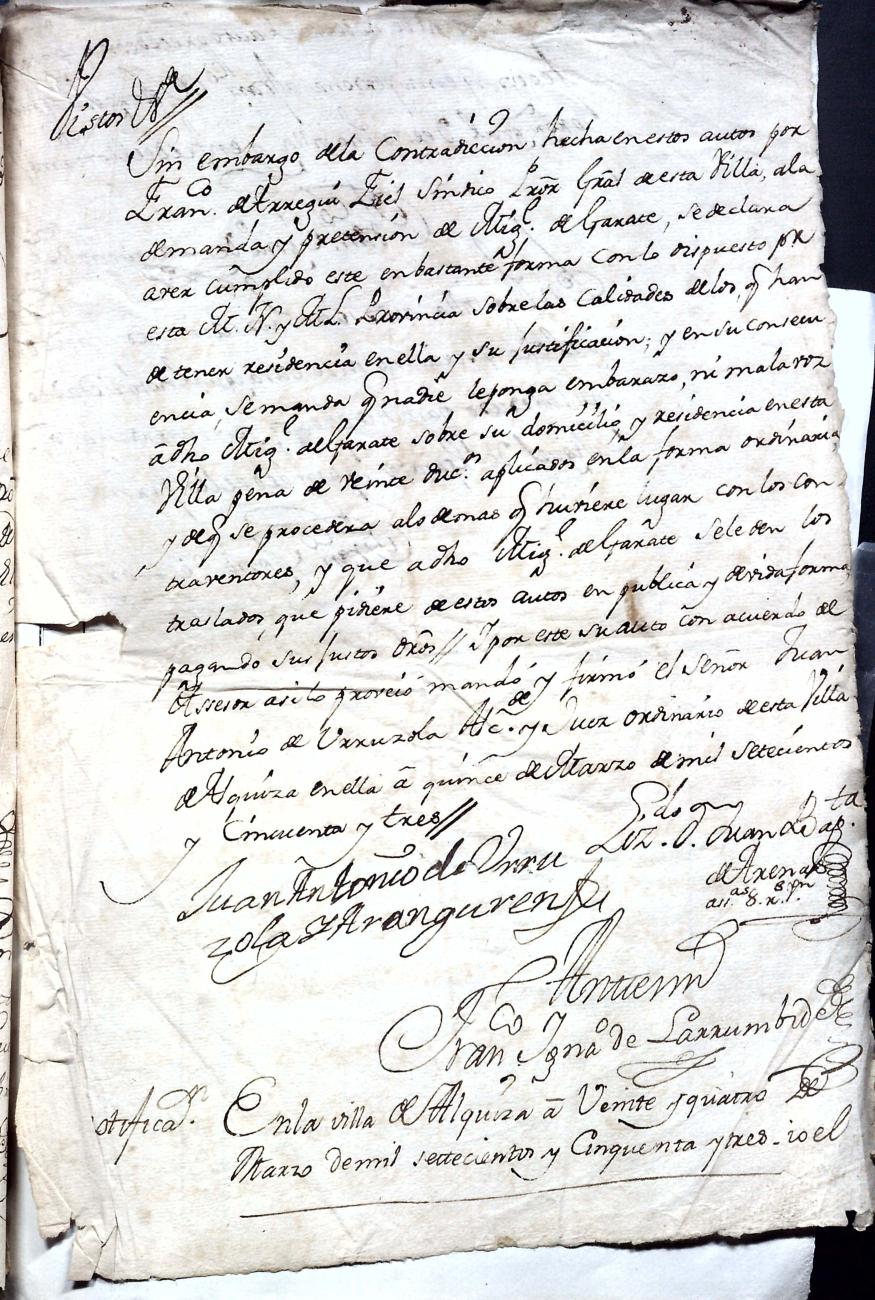 Vistos &a//
Sin embargo de la Contradiccion hecha en estos autos por
Franco. de Arregui Fiel Sindico Pror Gral de esta Villa, ala
demanda y pretensión de Migl. de Garate, se declara
aver cumplido este en bastante forma con lo dispuesto pr
esta M. N. y M. L. Provincia sobre las Calidades de los, q han
de tener residencia en ella y su justificacion; y en su consecu
encia, se manda q nadie le ponga embarazo, ni mala voz
â dho Migl. de Garate sobre su domicilio y residencia en esta
Villa pena de veinte Ducos. aplicados en la forma ordinaria
y de q se procedera a lo demas q huviere lugar con los con-
traventores, y que a dho Migl. de Garate se le den los
traslados, que pidiere de estos autos en publica y devida forma,
pagando sus justos dros// Y por este su auto con acuerdo de
Assesor asi lo proveió mandó y firmó el señor Juan
Antonio de Urruzola Alcde. y Juez ordinario de esta Villa
de Alquiza en ella â quince de Marzo de mil setecientos
y Cincuenta y tres//
Juan Antonio de Urru
zola y Aranguren
Lizdo. Dn. Juan Bapta.
de Arena
Antemi
Franco Ignao de Larrumbide
otificaon. En la villa de Alquiza â Veinte y quatro de
Marzo de mil settecientos y Cinquenta y tres - io el